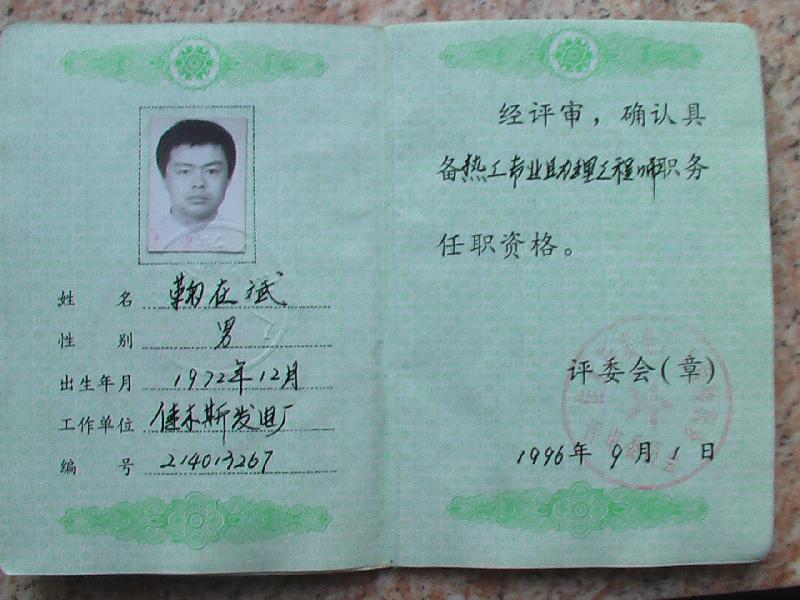 姓 名 鞠在斌
性 别 男
出生年月 1972年12月
工作单位 佳木斯发电厂
编 号 214013267
经评审，确认具
备热工专业助理工程师职务
任职资格。
评委会(章)
1996年9月1日